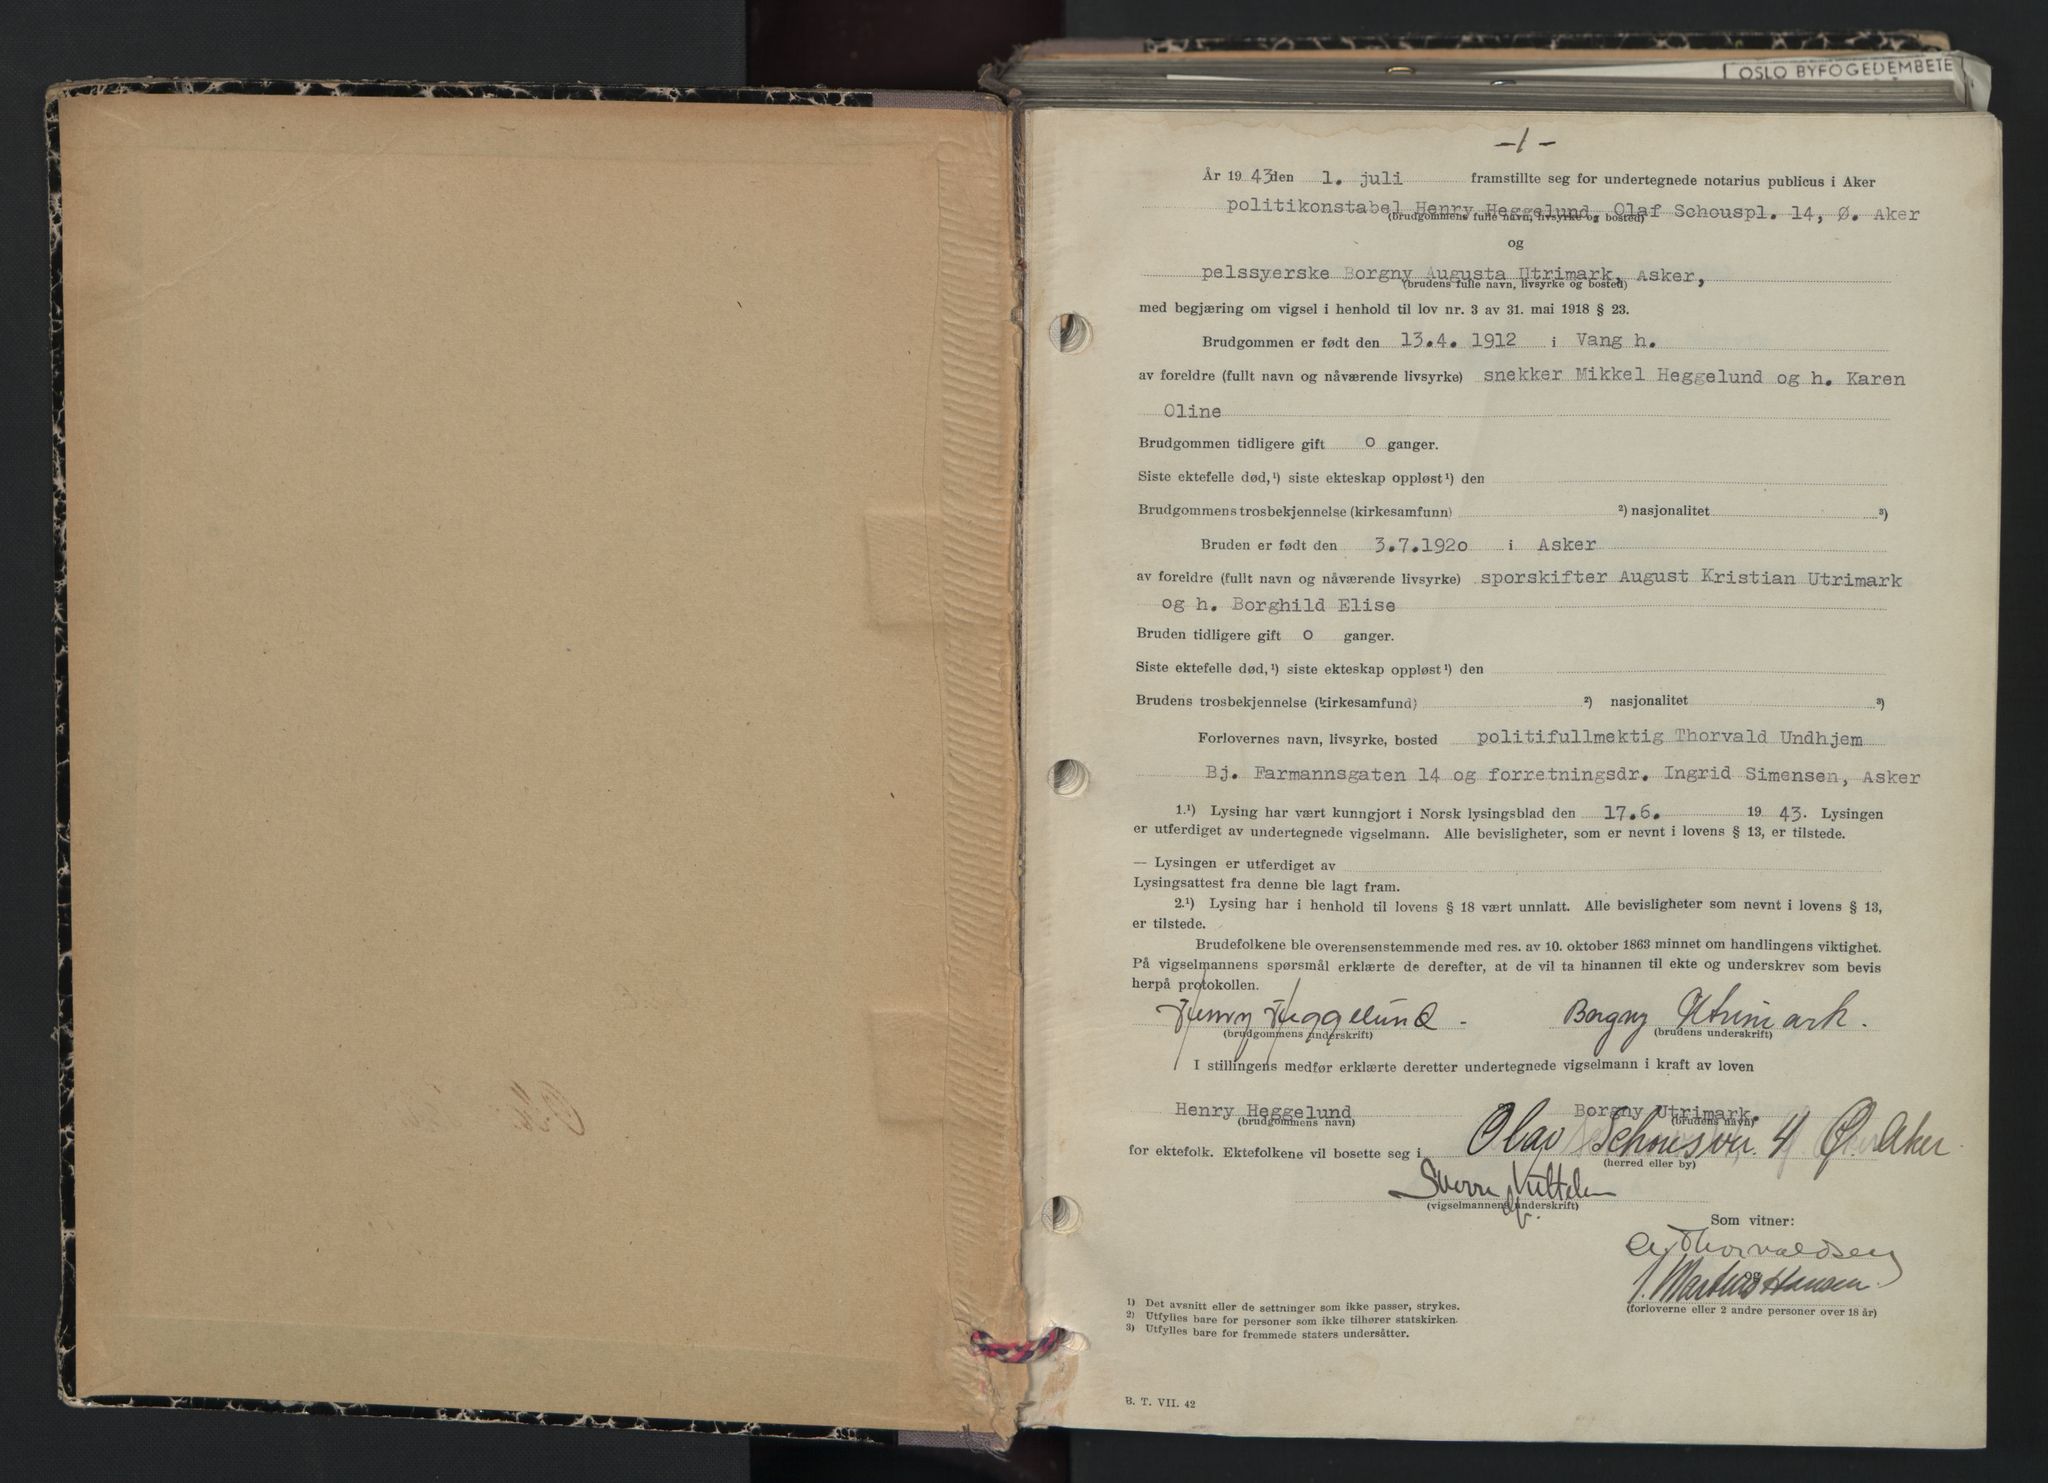 OSLO BYFOGEDEMBETE
-1-
År 1943 den 1. juli framstillte seg for undertegnede notarius publicus i Aker
politikonstabel Henry Heggelund, Olaf Schouspl. 14, Ø. Aker
(brudgommens fulle navn, livsyrke og bosted)
og
pelssyerske Borgny Augusta Utrimark, Asker,
(brudens fulle navn, livsyrke og bosted)
med begjæring om vigsel i henhold til lov nr. 3 av 31. mai 1918 § 23.
Brudgommen er født den 13.4. 1912 i Vang h.
av foreldre (fullt navn og nåværende livsyrke) snekker Mikkel Heggelund og h. Karen
Oline
Brudgommen tidligere gift o ganger.
Siste ektefelle død,¹) siste ekteskap oppløst¹) den
Brudgommens trosbekjennelse (kirkesamfunn) ²) nasjonalitet ³)
Bruden er født den 3.7.1920 i Asker
av foreldre (fullt navn og nåværende livsyrke) sporskifter August Kristian Utrimark
og h. Borghild Elise
Bruden tidligere gift o ganger.
Siste ektefelle død,¹) siste ekteskap oppløst¹) den
Brudens trosbekjennelse (kirkesamfund) ²) nasjonalitet ³)
Forlovernes navn, livsyrke, bosted politifullmektig Thorvald Undhjem
Bj. Farmannsgaten 14 og forretningsdr. Ingrid Simensen, Asker
1.¹) Lysing har vært kunngjort i Norsk lysingsblad den 17.6. 1943. Lysingen
er utferdiget av undertegnede vigselmann. Alle bevisligheter, som er nevnt i lovens § 13, er tilstede.
— Lysingen er utferdiget av
Lysingsattest fra denne ble lagt fram.
2.¹) Lysing har i henhold til lovens § 18 vært unnlatt. Alle bevisligheter som nevnt i lovens § 13,
er tilstede.
Brudefolkene ble overensenstemmende med res. av 10. oktober 1863 minnet om handlingens viktighet.
På vigselmannens spørsmål erklærte de derefter, at de vil ta hinannen til ekte og underskrev som bevis
herpå protokollen.
Henry Heggelund. Borgny Utrimark.
(brudgommens underskrift) (brudens underskrift)
I stillingens medfør erklærte deretter undertegnede vigselmann i kraft av loven
Henry Heggelund Borgny Utrimark.
(brudgommens navn) (brudens navn)
for ektefolk. Ektefolkene vil bosette seg i Olav Schousvn. 4 Ø. Aker.
(herred eller by)
Sverre
(vigselmannens underskrift)
Som vitner:
Thorvaldsen
og
Hansen.
(forloverne eller 2 andre personer over 18 år)
1) Det avsnitt eller de settninger som ikke passer, strykes.
2) Utfylles bare for personer som ikke tilhører statskirken.
3) Utfylles bare for fremmede staters undersåtter.
B. T. VII. 42